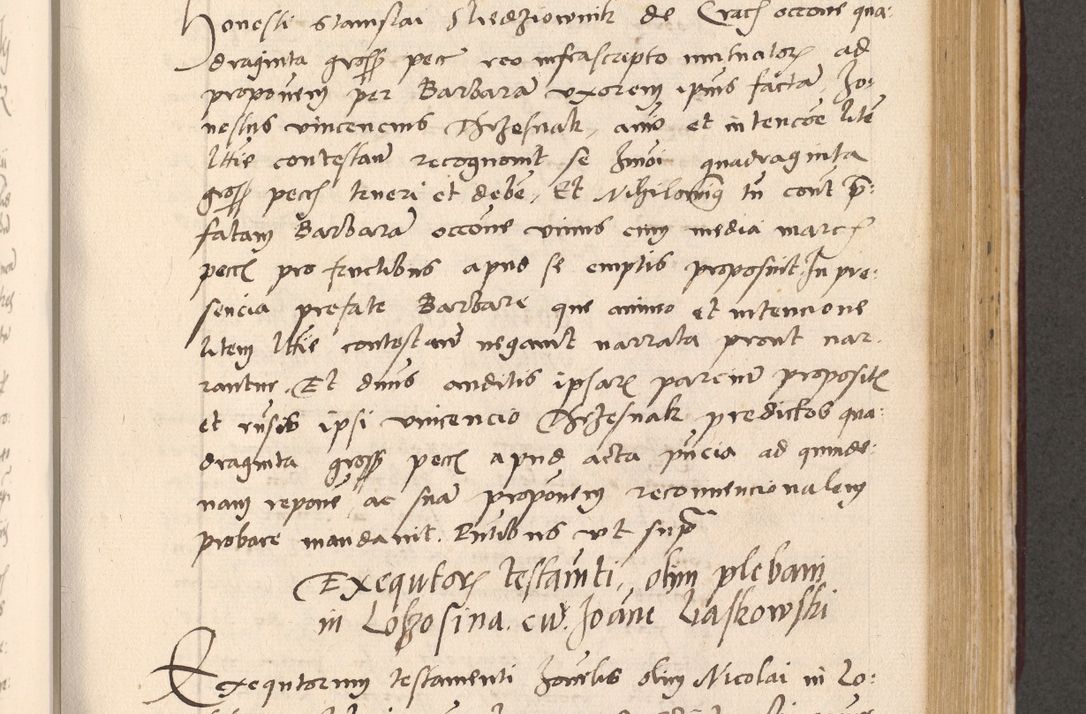 Honesti Stanislai Sliedziownik de Crac occone qua-
draginta gross pec reo infrascripto mutuator ad
proponem per Barbara uxorem ipius facta, Ho-
nestus vincencius Thrzesnak, aio et intencoe lite
lttie contestan recognouit se Invoi quadraginta
gross pecc teneri et debe, Et Nihilominus tn cont p-
fatam Barbara occone vnius cum media marc
pecc pro fructibus apud se emptis proposuit. In pre-
sencia prefate Barbare que animo et intencione
litem lttie contestan negauit narrata prout nar-
rantur. Et dnus auditis ipsar parcium proposit
et rnsis ipsi vincencio Thrzesnak predictos qua-
draginta gross pecc apud acta pncia ad quinde-
nam repone ac sua proponem reconuencionalem
probare mandauit. Pntibus vt supra
Exequtor testamti, olim plebani
in Lobzosina. cu. Joane Liaskowski
Exequtorum testamenti honelis olim Nicolai in Lo-